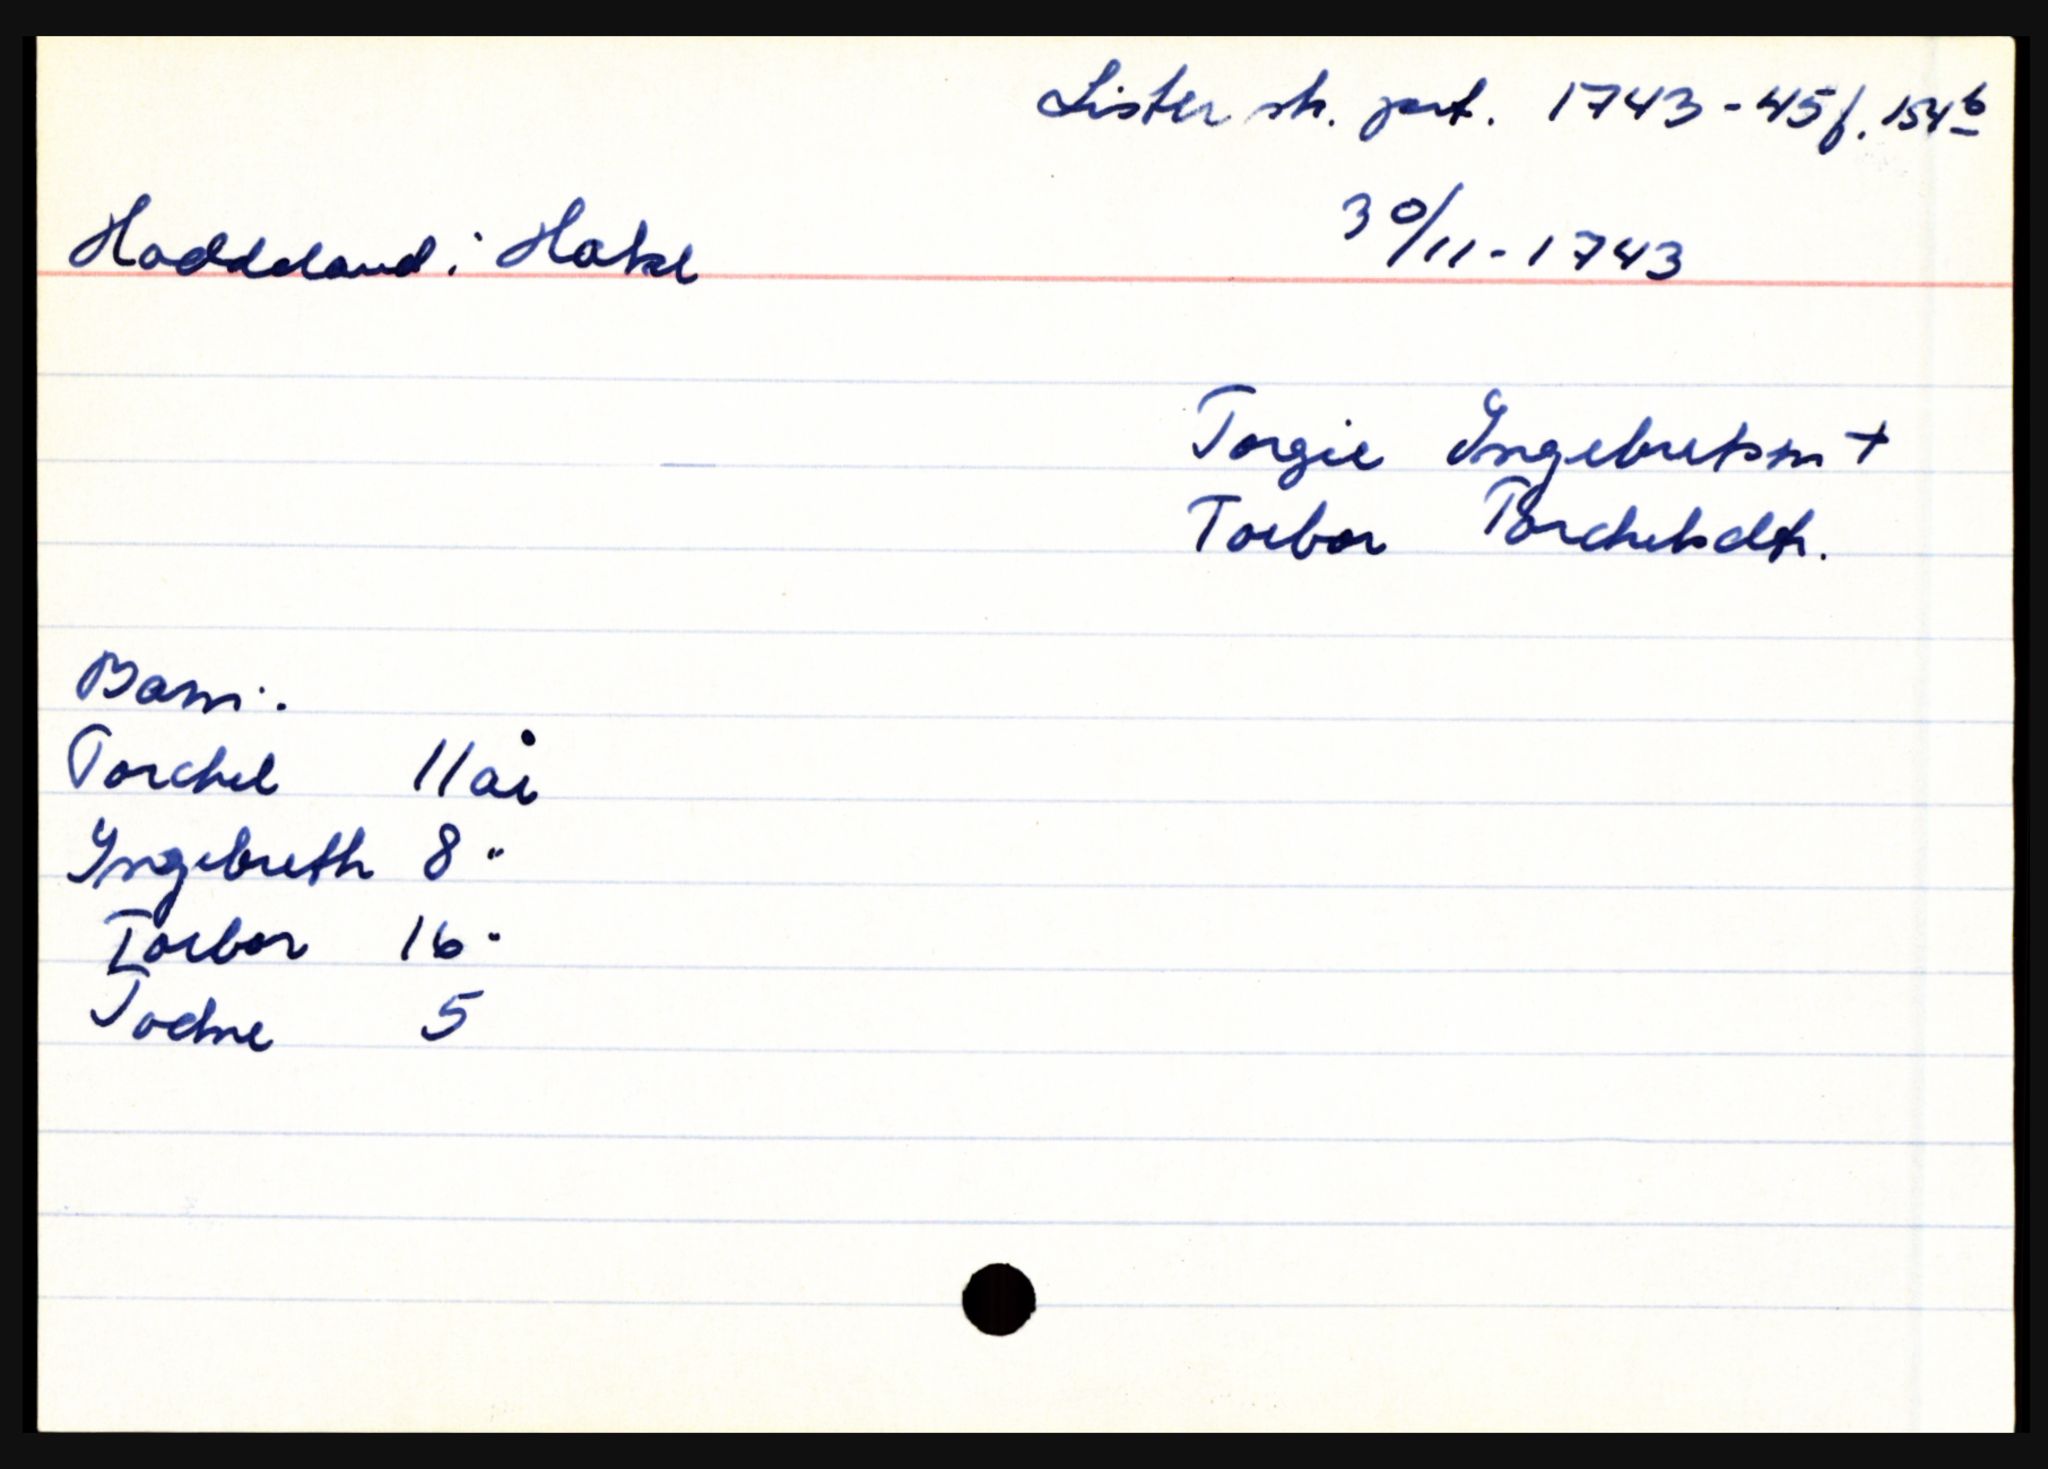 Lister sk. prot. 1743-45 f. 154b
30/11-1743
Haddeland i Hakl
Torgie Ingebretsen +
Torbor Torchelsdtr.
Barn:
Torchel 11 år
Ingebreth 8 "
Torbor 16 "
Todne 5